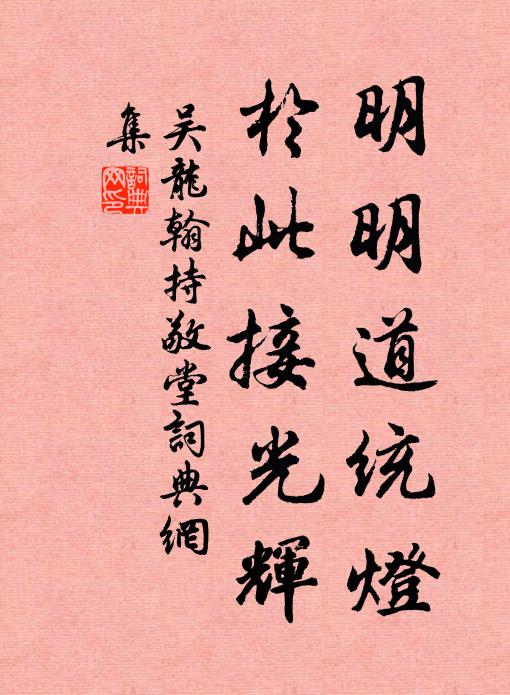 明明道統燈
於此接光輝
吴龍翰持敬堂詞典網
集
詞典網印